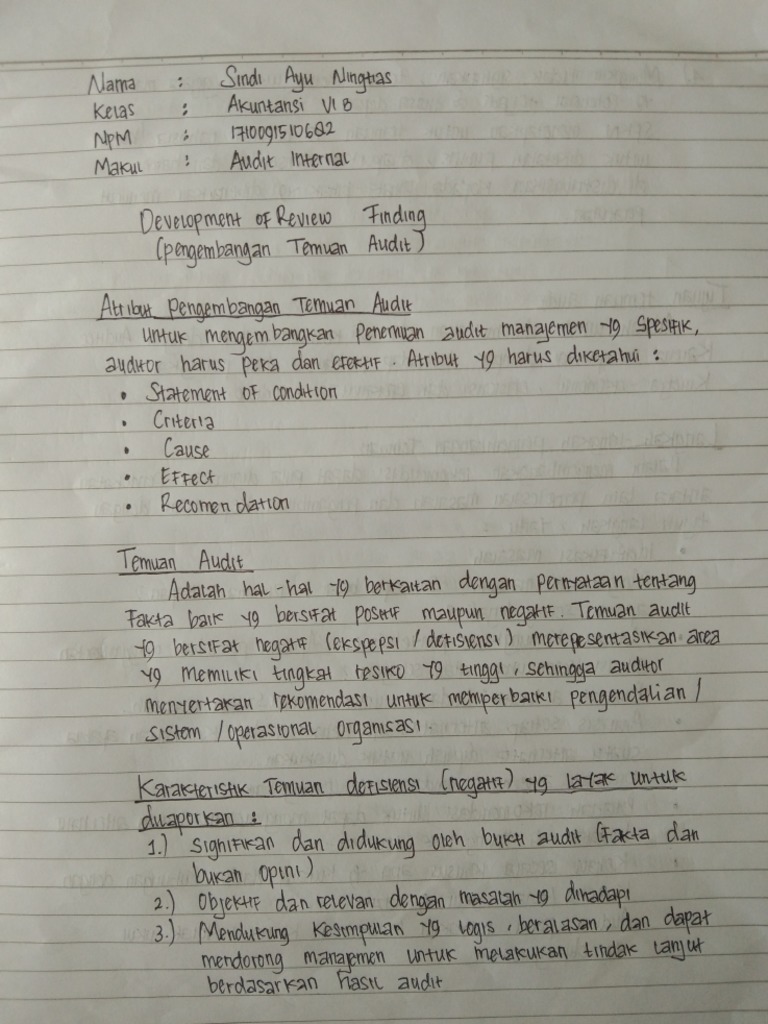 Nama : Sindi Ayu Ningtias
Kelas : Akuntansi VI B
NPM : 1710091510682
Makul : Audit Internal
Development of Review Finding
(pengembangan Temuan Audit)
Atribut pengembangan Temuan Audit
untuk mengembangkan Penemuan audit manajemen yg spesifik,
auditor harus peka dan efektif. Atribut yg harus diketahui :
• Statement of condition
• Criteria
• Cause
• Effect
• Recomendation
Temuan Audit
Adalah hal-hal yg berkaitan dengan pernyataan tentang
Fakta baik yg bersifat positif maupun negatif. Temuan audit
yg bersifat negatif (ekspepsi / defisiensi) merepesentasikan area
yg memiliki tingkat resiko yg tinggi, sehingga auditor
menyertakan rekomendasi untuk memperbaiki pengendalian /
sistem / operasional organisasi.
Karakteristik Temuan defisiensi (negatif) yg layak untuk
dilaporkan :
1.) Signifikan dan didukung oleh bukti audit (fakta dan
bukan opini)
2.) Objektif dan relevan dengan masalah yg dihadapi
3.) Mendukung kesimpulan yg logis, beralasan, dan dapat
mendorong manajemen untuk melakukan tindak lanjut
berdasarkan hasil audit